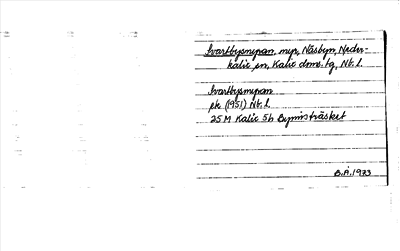 Svartbysmyran, myr, Näsbyn, Neder-
kalix sn, Kalix doms. tg, Nb. l.
Svartbysmyran
ek. (1951) Nb. l.
25 M Kalix 5b Bymisträsket
B.Å. 1973